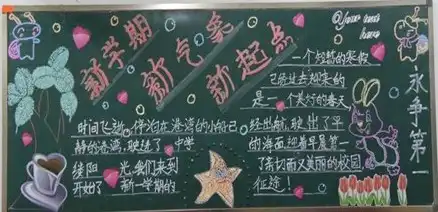 新学期
新气象
新起点
一个短暂的寒假
已经过去迎来的
是一个美好的春天
时间飞逝 停泊在港湾的小船已经出航,驶出了平
静的港湾,驶进了 的海面,迎着早晨第一
缕阳 光,我们来到了亲切而又美丽的校园
开始了 新一学期的征途!
永争第一